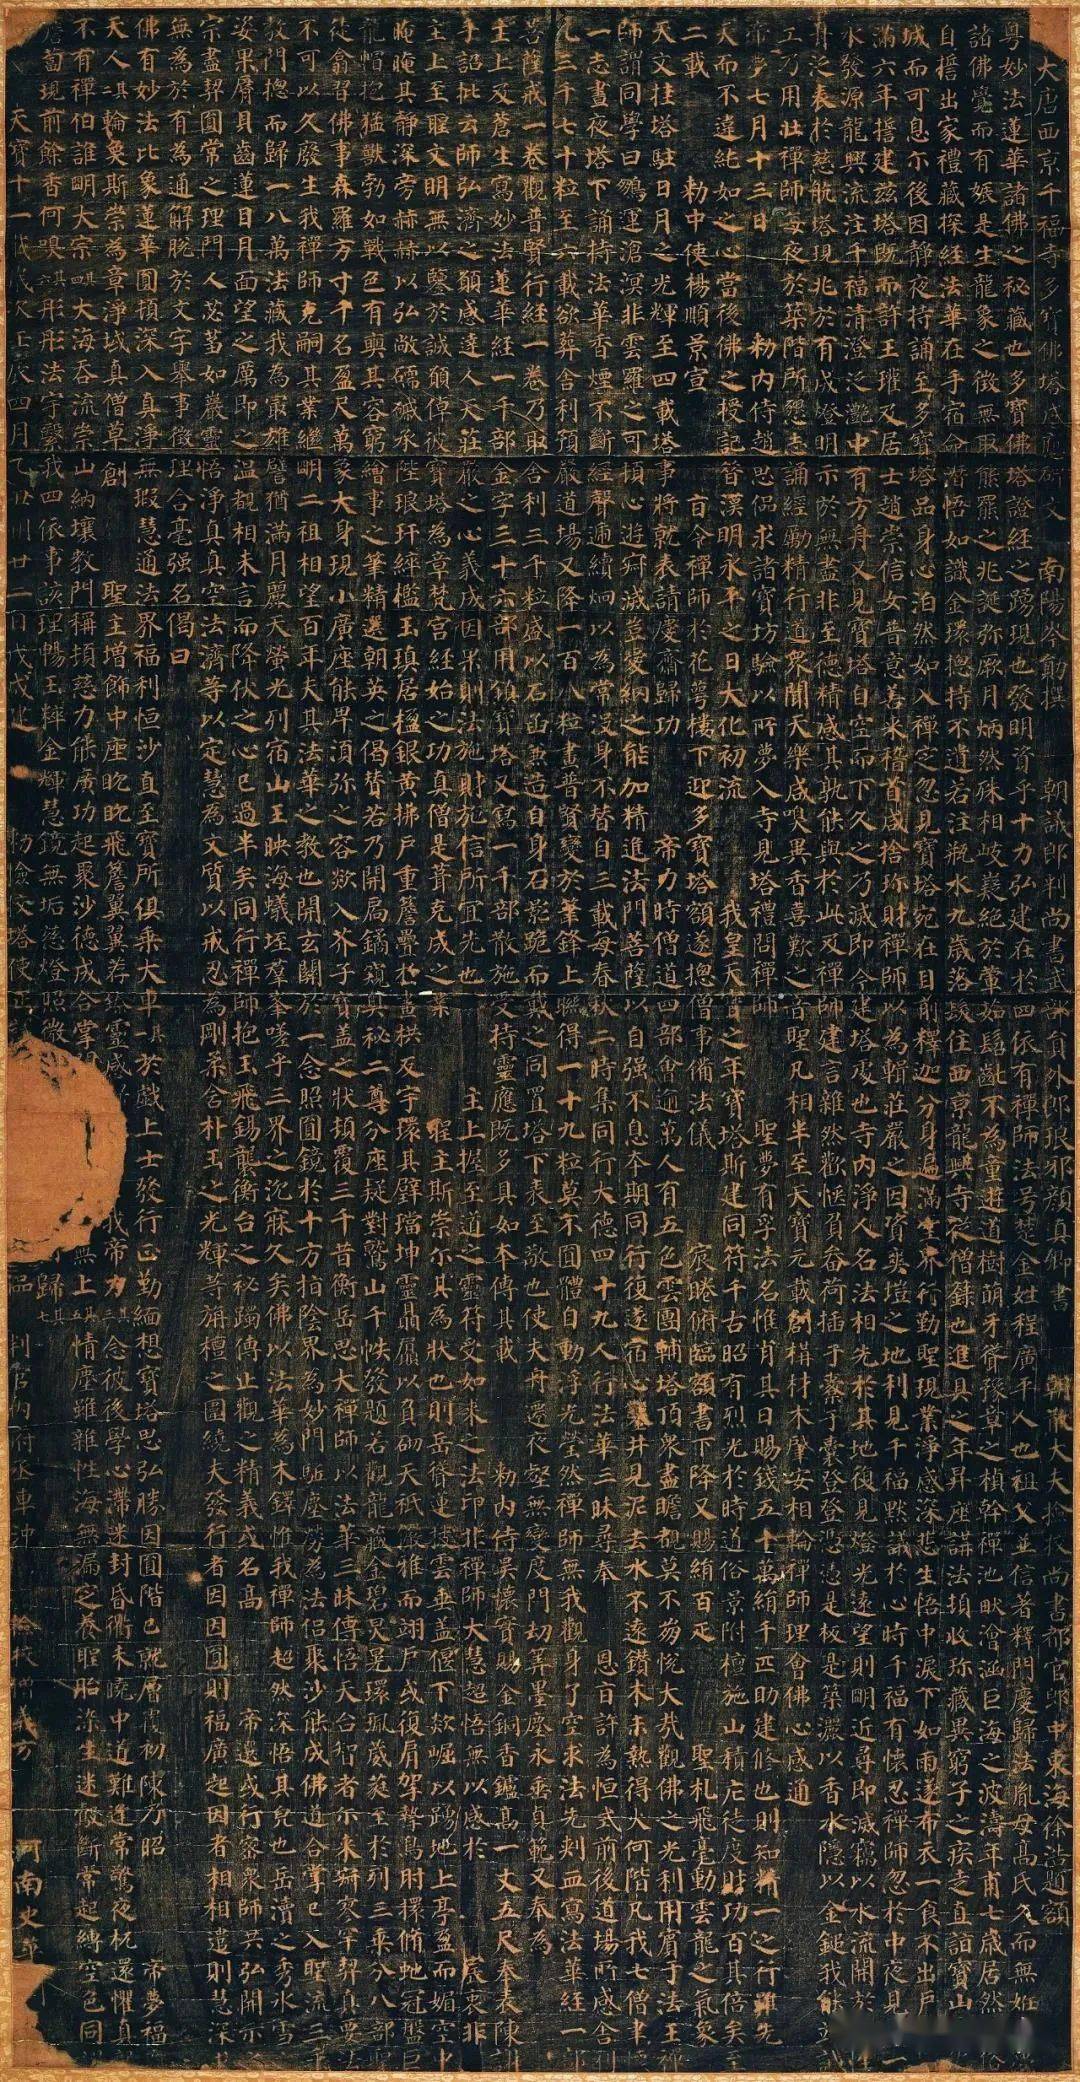 大唐西京千福寺多寶佛塔感應碑文 南陽岑勛撰 朝議郎判尚書武部員外郎琅邪顏真卿書 朝散大夫撿挍尚書都官郎中東海徐浩題額
粵妙法蓮華諸佛之秘藏也多寶佛塔證經之踴現也發明資乎十力弘建在於四依有禪師法号楚金姓程廣平人也祖父並信著釋門慶歸法胤母高氏久而無姙夜夢
諸佛覺而有娠是生龍象之徵無取熊羆之兆誕弥厥月炳然殊相岐嶷絕於葷茹髫齔不為童遊道樹萌牙聳豫章之楨幹禪池畎澮涵巨海之波濤年甫七歲居然猒俗
自誓出家禮藏探經法華在手宿命潛悟如識金環揔持不遺若注瓶水九歲落髮住西京龍興寺從僧籙也進具之年昇座講法頓收珎藏異窮子之疾走直詣寶山無化
城而可息尓後因靜夜持誦至多寶塔品身心泊然如入禪定忽見寶塔宛在目前釋迦分身遍滿空界行勤聖現業淨感深悲生悟中淚下如雨遂布衣一食不出戶庭期
滿六年誓建茲塔既而許王瓘及居士趙崇信女普意善來稽首咸捨珎財禪師以為輯莊嚴之因資爽塏之地利見千福默議於心時千福有懷忍禪師忽於中夜見有一
水發源龍興流注千福清澄泛灩中有方舟又見寶塔自空而下久之乃滅即今建塔處也寺內淨人名法相先於其地復見燈光遠望則明近尋即滅竊以水流開於法性舟
泛表於慈航塔現兆於有成燈明示於無盡非至德精感其孰能與於此及禪師建言雜然歡愜負畚荷插于橐于囊登登憑憑是板是築灑以香水隱以金鎚我能竭誠
工乃用壯禪師每夜於築階所懇志誦經勵精行道眾聞天樂咸嗅異香喜歎之音聖凡相半至天寶元載創構材木肇安相輪禪師理會佛心感通
帝夢七月十三日 勑內侍趙思偘求諸寶坊驗以所夢入寺見塔禮問禪師 聖夢有孚法名惟肖其日賜錢五十萬絹千匹助建修也則知精一之行雖先
天而不違純如之心當後佛之授記昔漢明永平之日大化初流 我皇天寶之年寶塔斯建同符千古昭有烈光於時道俗景附檀施山積庀徒度財功百其倍矣至
二載 勑中使楊順景宣 旨令禪師於花萼樓下迎多寶塔額遂揔僧事俻法儀 宸睠俯臨額書下降又賜絹百疋 聖札飛毫動雲龍之氣象
天文挂塔駐日月之光輝至四載塔事將就表請慶齋歸功 帝力時僧道四部會逾萬人有五色雲團輔塔頂眾盡瞻覩莫不崩悅大哉觀佛之光利用賓于法王禪
師謂同學曰鵬運滄溟非雲羅之可頓心遊寂滅豈愛網之能加精進法門菩薩以自強不息本期同行復遂宿心鑿井見泥去水不遠鑽木未熱得火何階凡我七僧聿懷
一志晝夜塔下誦持法華香煙不斷經聲遞續炯以為常沒身不替自三載每春秋二時集同行大德四十九人行法華三昧尋奉 恩旨許為恒式前後道場所感舍利
凡三千七十粒至六載欲葬舍利預嚴道場又降一百八粒畫普賢變於筆鋒上聯得一十九粒莫不圓體自動浮光瑩然禪師無我觀身了空求法先刺血寫法華經一部
菩薩戒一卷觀普賢行經一卷乃取舍利三千粒盛以石函兼造自身石影跪而戴之同置塔下表至敬也使夫舟遷夜壑無變度門劫筭墨塵永垂貞範又奉為
主上及蒼生寫妙法蓮華經一千部金字三十六部用鎮寶塔又寫一千部散施受持靈應既多具如本傳其載 勑內侍吳懷實賜金銅香鑪高一丈五尺奉表陳謝
手詔批云師弘濟之願感達人天莊嚴之心義成因果則法施財施信所宜先也 主上握至道之靈符受如來之法印非禪師大慧超悟無以感於 宸衷非
主上至聖文明無以鑒於誠願倬彼寶塔為章梵宮經始之功真僧是葺克成之業 聖主斯崇尔其為狀也則岳聳蓮披雲垂盖偃下欻崛以踴地上亭盈而媚空中
晻晻其靜深旁赫赫以弘敞礝磩承陛琅玕綷檻玉瑱居楹銀黃拂戶重簷疊於畫栱反宇環其璧璫坤靈贔屓以負砌天祇儼雅而翊戶或復肩挐摯鳥肘擐脩虵冠盤巨
龍帽抱猛獸勃如戰色有奭其容窮繪事之筆精選朝英之偈贊若乃開扃鐍窺其秘二尊分座疑對鷲山千帙發題若觀龍藏金碧炅晃環珮葳蕤至於列三乘分八部聖
徒翕習佛事森羅方寸千名盈尺萬象大身現小廣座能卑須弥之容欻入芥子寶盖之狀頓覆三千昔衡岳思大禪師以法華三昧傳悟天台智者尓來寂寥罕契真要法
不可以久廢生我禪師克嗣其業繼明二祖相望百年夫其法華之教也開玄關於一念照圓鏡於十方指陰界為妙門駈塵勞為法侶聚沙能成佛道合掌已入聖流三乘
教門揔而歸一八萬法藏我為最雄譬猶滿月麗天螢光列宿山王映海蟻垤群峯嗟乎三界之沉寐久矣佛以法華為木鐸惟我禪師超然深悟其皃也岳瀆之秀氷雪之
姿果脣貝齒蓮目月面望之厲即之溫覩相未言而降伏之心已過半矣同行禪師抱玉飛錫襲衡台之秘躅傳止觀之精義或名高 帝選或行密眾師共弘開示之
宗盡契圓常之理門人苾蒭如巖靈悟淨真真空法濟等以定慧為文質以戒忍為剛柔含朴玉之光輝等旃檀之圍繞夫發行者因因圓則福廣起因者相相遣則慧深
無為於有為通解脫於文字舉事徵理含毫強名偈曰
佛有妙法比象蓮華圓頓深入真淨無瑕慧通法界福利恒沙直至寶所俱乘大車其一於戲上士發行正勤緬想寶塔思弘勝因圓階已就層覆初陳乃昭 帝夢福
天人其二輪奐斯崇為章淨域真僧草創 聖主增飾中座眈眈飛簷翼翼荐臻靈感 我帝力其三念彼後學心滯迷封昏衢未曉中道難逢常驚夜杌還懼真
不有禪伯誰明大宗其四大海吞流崇山納壤教門稱頓慈力能廣功起聚沙德成合掌 無上其五情塵雖雜性海無漏定養聖胎染生迷鷇斷常起縛空色同
薝蔔現前餘香何嗅其六彤彤法宇繄我四依事該理暢玉粹金輝慧鏡無垢慈燈照微 歸其七
天寶十一載歲次壬辰四月乙丑朔廿二日戊戌建 勑撿挍塔使 判官內府丞車沖 撿挍僧義方 河南史華